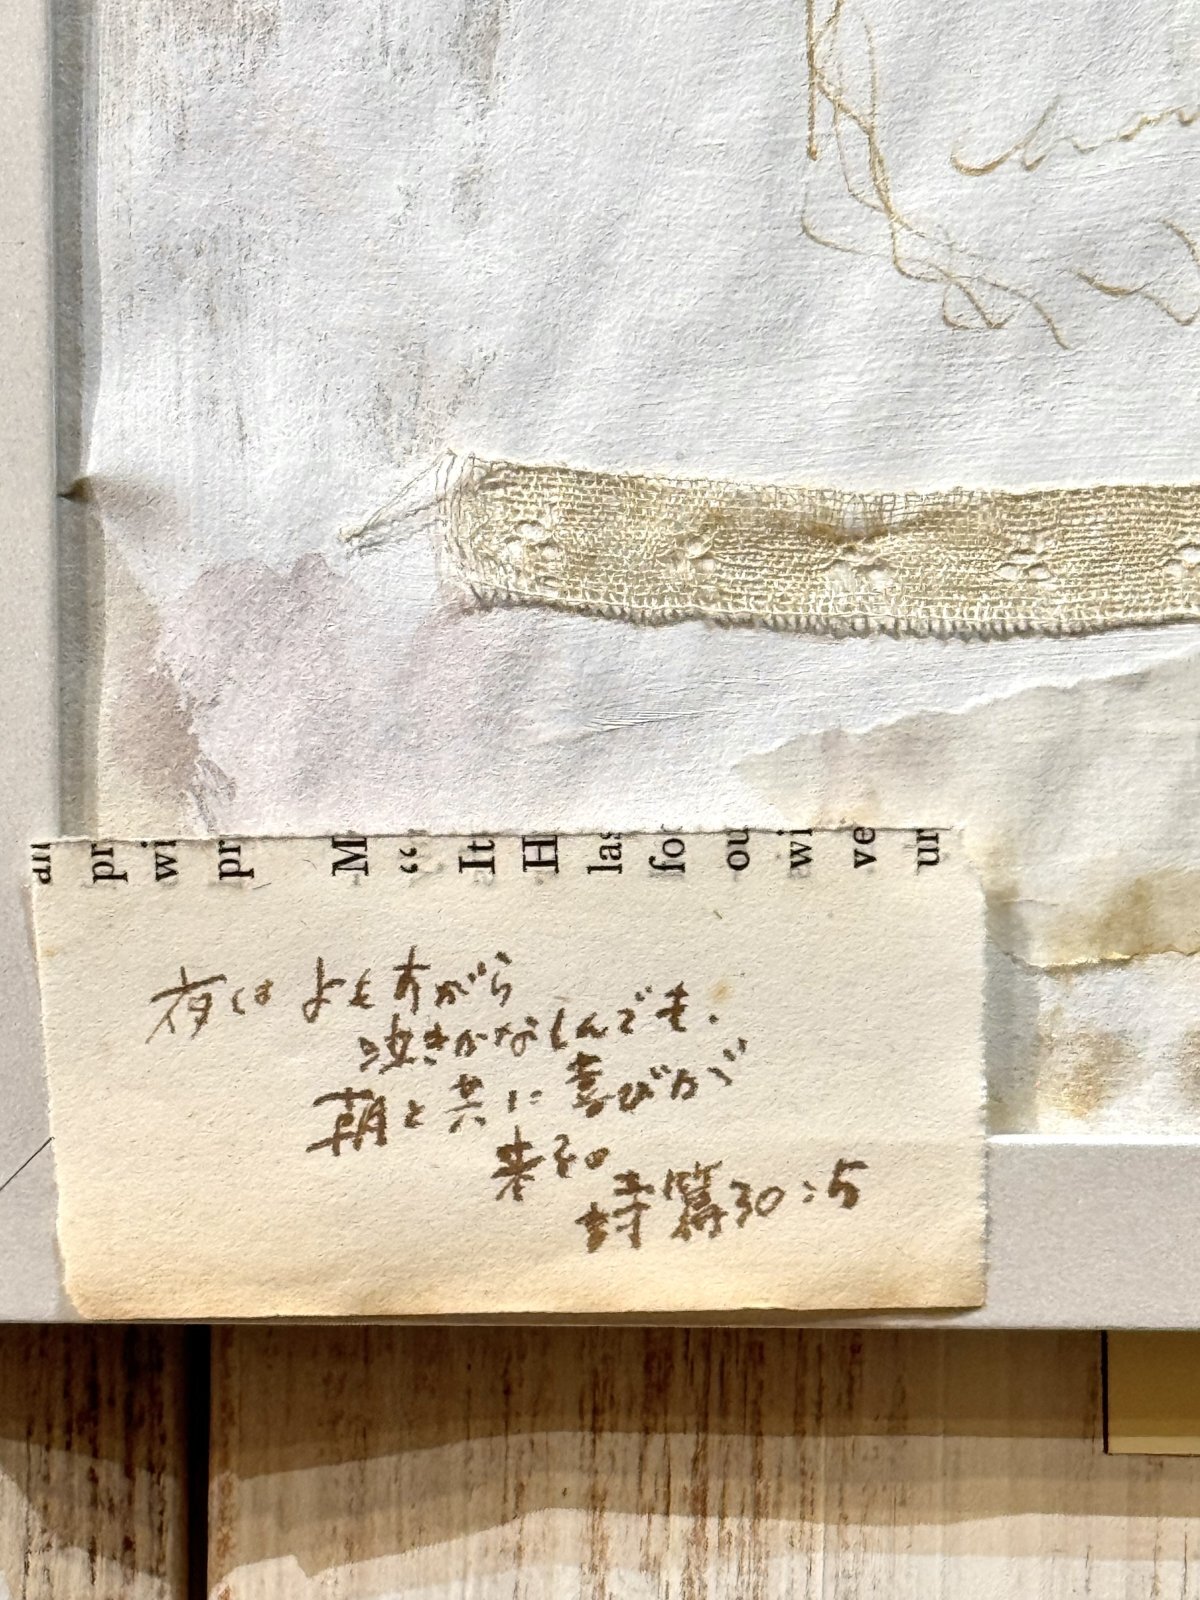 all
pr
wi
pr
M
“
It
H
las
fo
ou
wi
ve
un
夜はよもすがら
泣きかなしんでも、
朝と共に喜びが
来る。
詩篇30:5